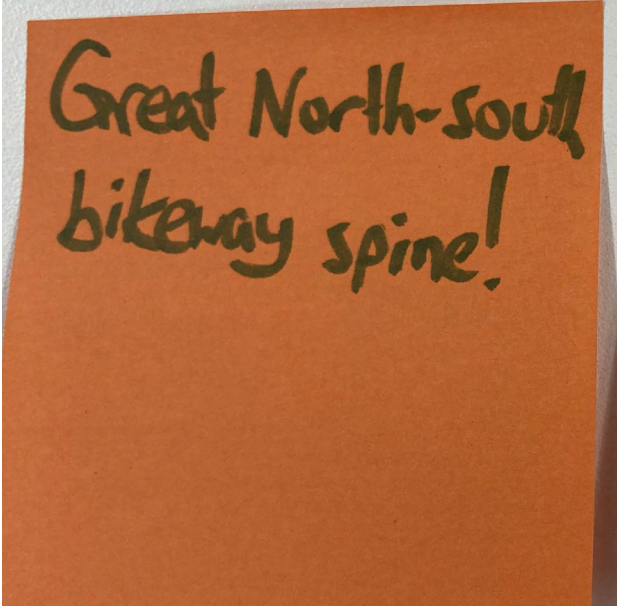 Great North-south
bikeway spine!